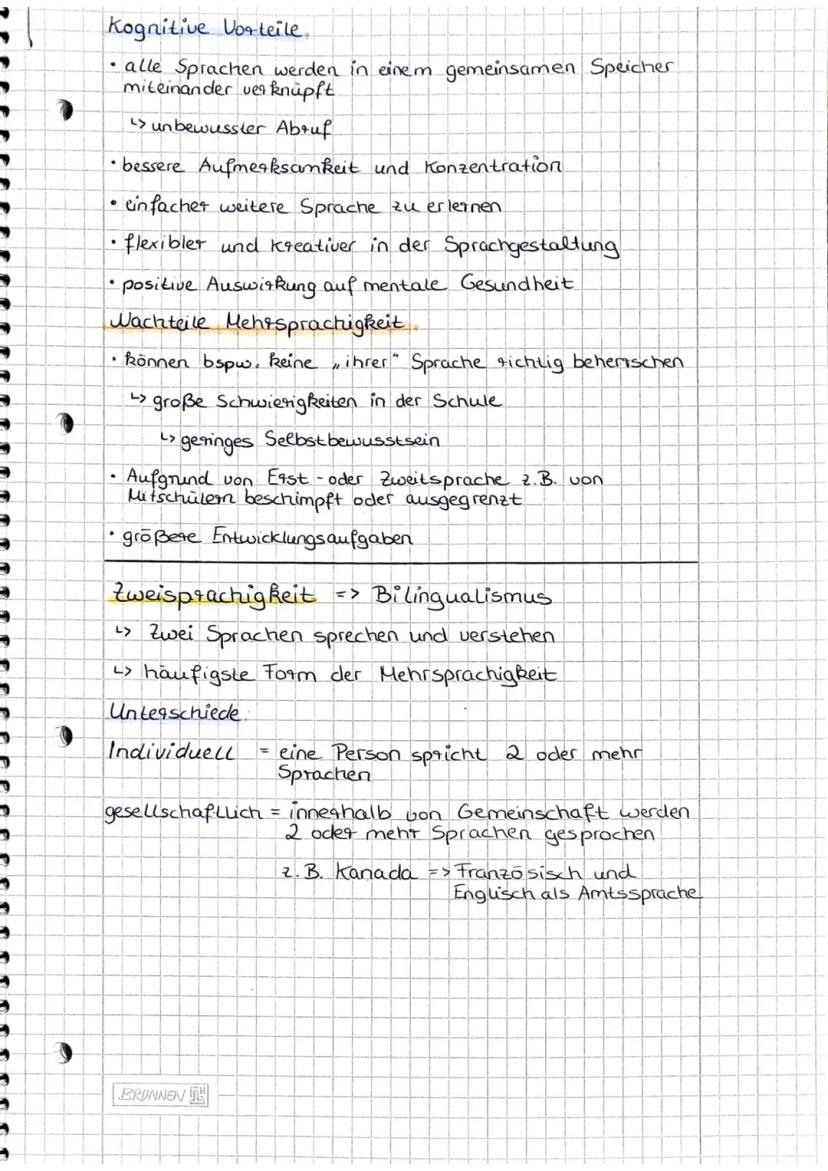 Kognitive Vorteile
• alle Sprachen werden in einem gemeinsamen Speicher
miteinander verknüpft
↳ unbewusster Abruf
• bessere Aufmerksamkeit und Konzentration
• einfacher weitere Sprache zu erlernen
• flexibler und kreativer in der Sprachgestaltung
• positive Auswirkung auf mentale Gesundheit
Nachteile Mehrsprachigkeit
• können bspw. keine „ihrer" Sprache richtig beherrschen
↳ große Schwierigkeiten in der Schule
↳ geringes Selbstbewusstsein
• Aufgrund von Erst- oder Zweitsprache z.B. von
Mitschülern beschimpft oder ausgegrenzt
• größere Entwicklungsaufgaben
Zweisprachigkeit => Bilingualismus
↳ Zwei Sprachen sprechen und verstehen
↳ häufigste Form der Mehrsprachigkeit
Unterschiede
Individuell = eine Person spricht 2 oder mehr
Sprachen
gesellschaftlich = innerhalb von Gemeinschaft werden
2 oder mehr Sprachen gesprochen
z.B. Kanada => Französisch und
Englisch als Amtssprache
BRUNNEN